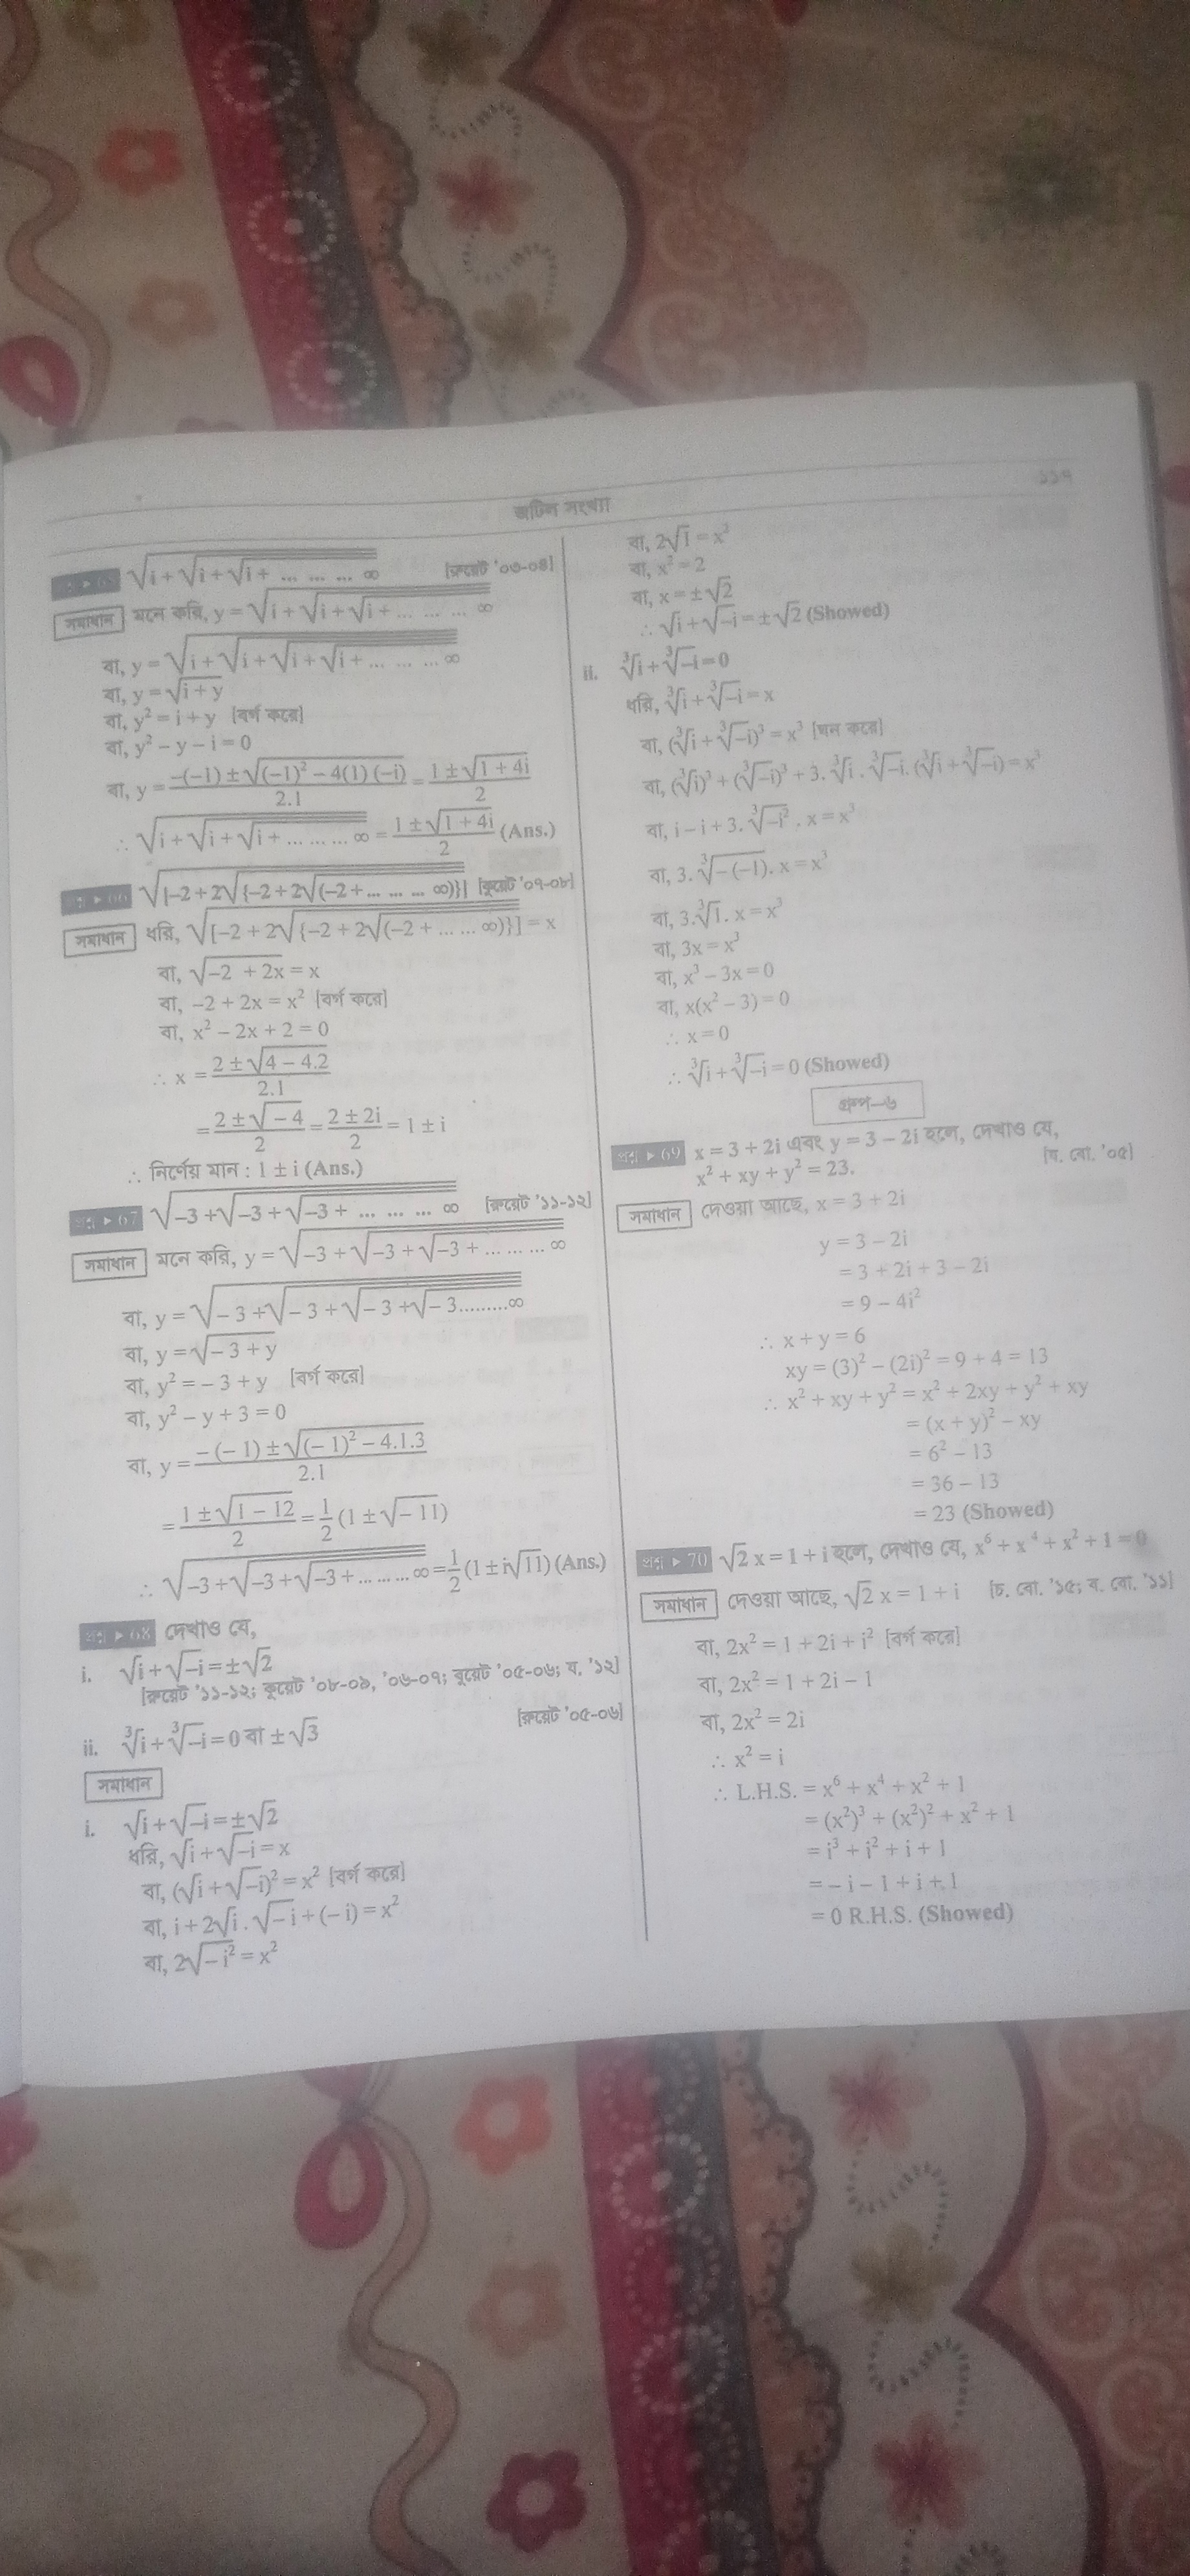 জটিল সংখ্যা
১১৭
√i + √i + √i + ... ... ... ∞ [রুয়েট '০৩-০৪]
সমাধান মনে করি, y = √i + √i + √i + ... ... ... ∞
বা, y = √i + √i + √i + √i + ... ... ... ∞
বা, y = √i + y
বা, y² = i + y [বর্গ করে]
বা, y² – y – i = 0
বা, y = –(–1) ± √(–1)² – 4(1) (–i) / 2.1 = 1 ± √1 + 4i / 2
∴ √i + √i + √i + ... ... ... ∞ = 1 ± √1 + 4i / 2 (Ans.)
প্রশ্ন ▸ 66 √[–2 + 2√{–2 + 2√(–2 + ... ... ... ∞)}] [কুয়েট '০৭-০৮]
সমাধান ধরি, √[–2 + 2√{–2 + 2√(–2 + ... ... ∞)}] = x
বা, √–2 + 2x = x
বা, –2 + 2x = x² [বর্গ করে]
বা, x² – 2x + 2 = 0
∴ x = 2 ± √4 – 4.2 / 2.1
= 2 ± √– 4 / 2 = 2 ± 2i / 2 = 1 ± i
∴ নির্ণেয় মান : 1 ± i (Ans.)
প্রশ্ন ▸ 67 √–3 + √–3 + √–3 + ... ... ... ∞ [রুয়েট '১১-১২]
সমাধান মনে করি, y = √–3 + √–3 + √–3 + ... ... ... ∞
বা, y = √– 3 + √– 3 + √– 3 + √– 3.........∞
বা, y = √– 3 + y
বা, y² = – 3 + y [বর্গ করে]
বা, y² – y + 3 = 0
বা, y = – (– 1) ± √(– 1)² – 4.1.3 / 2.1
= 1 ± √1 – 12 / 2 = 1/2 (1 ± √– 11)
∴ √–3 + √–3 + √–3 + ... ... ... ∞ = 1/2 (1 ± i√11) (Ans.)
প্রশ্ন ▸ 68 দেখাও যে,
i. √i + √–i = ± √2
[রুয়েট '১১-১২; কুয়েট '০৮-০৯, '০৬-০৭; বুয়েট '০৫-০৬; য. '১২]
ii. ∛i + ∛–i = 0 বা ± √3 [রুয়েট '০৫-০৬]
সমাধান
i. √i + √–i = ± √2
ধরি, √i + √–i = x
বা, (√i + √–i)² = x² [বর্গ করে]
বা, i + 2√i . √–i + (–i) = x²
বা, 2√–i² = x²
বা, 2√1 = x²
বা, x² = 2
বা, x = ± √2
∴ √i + √–i = ± √2 (Showed)
ii. ∛i + ∛–i = 0
ধরি, ∛i + ∛–i = x
বা, (∛i + ∛–i)³ = x³ [ঘন করে]
বা, (∛i)³ + (∛–i)³ + 3. ∛i . ∛–i. (∛i + ∛–i) = x³
বা, i – i + 3. ∛–i² . x = x³
বা, 3. ∛–(–1). x = x³
বা, 3.∛1. x = x³
বা, 3x = x³
বা, x³ – 3x = 0
বা, x(x² – 3) = 0
∴ x = 0
∴ ∛i + ∛–i = 0 (Showed)
গ্রুপ–৬
প্রশ্ন ▸ 69 x = 3 + 2i এবং y = 3 – 2i হলে, দেখাও যে,
x² + xy + y² = 23. [য. বো. '০৫]
সমাধান দেওয়া আছে, x = 3 + 2i
y = 3 – 2i
= 3 + 2i + 3 – 2i
= 9 – 4i²
∴ x + y = 6
xy = (3)² – (2i)² = 9 + 4 = 13
∴ x² + xy + y² = x² + 2xy + y² + xy
= (x + y)² – xy
= 6² – 13
= 36 – 13
= 23 (Showed)
প্রশ্ন ▸ 70 √2 x = 1 + i হলে, দেখাও যে, x⁶ + x⁴ + x² + 1 = 0
সমাধান দেওয়া আছে, √2 x = 1 + i [চ. বো. '১৫; ব. বো. '১১]
বা, 2x² = 1 + 2i + i² [বর্গ করে]
বা, 2x² = 1 + 2i – 1
বা, 2x² = 2i
∴ x² = i
∴ L.H.S. = x⁶ + x⁴ + x² + 1
= (x²)³ + (x²)² + x² + 1
= i³ + i² + i + 1
= – i – 1 + i + 1
= 0 R.H.S. (Showed)